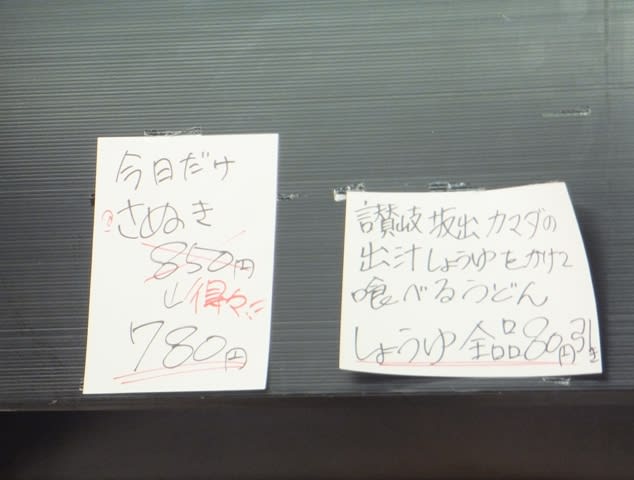 今日だけ
さぬき
850円
得々
780円
讃岐坂出カマダの
出汁しょうゆをかけて
喰べるうどん
しょうゆ全品80円引き